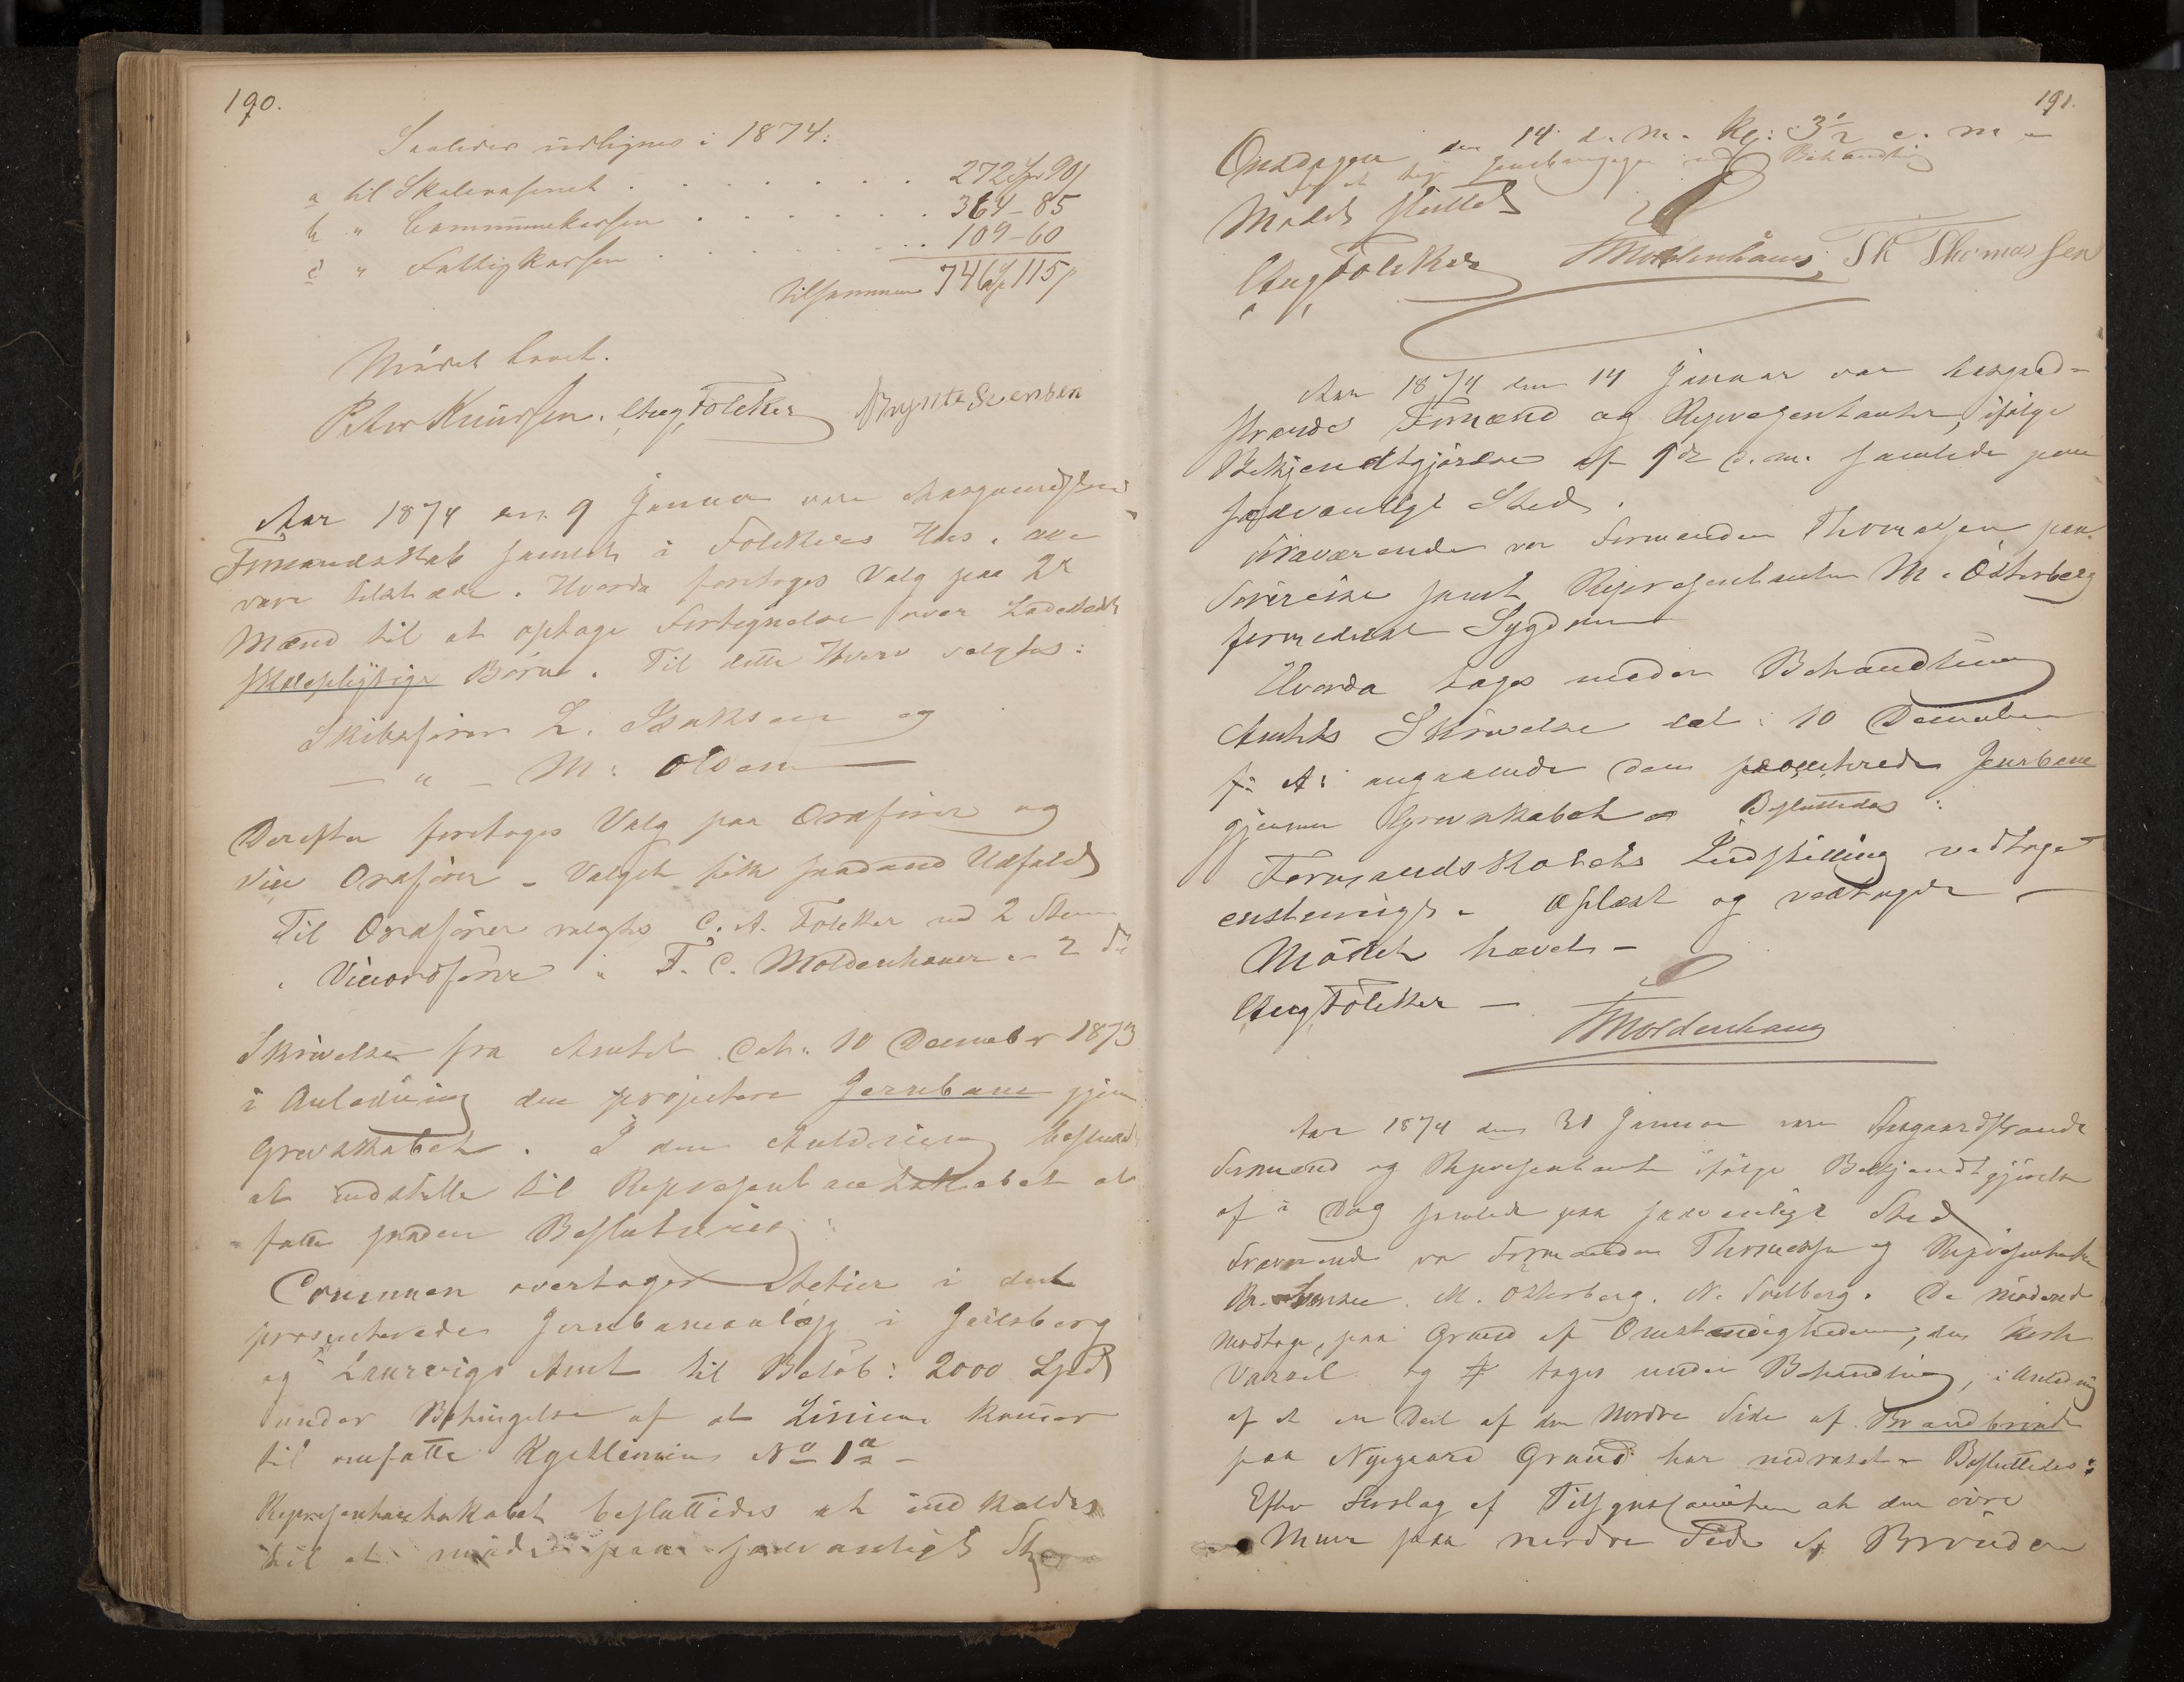 190.
Saaledes udlignes i 1874:
a til Skolevæsenet . . . . . . . 272 Spd 90 s
b " Communekassen . . . . . . 364 - 85
c " Fattigkassen . . . . . . 109 - 60
tilsammen 746 Spd 115 s
Mödet hævet.
Peter Knudsen. Aug Fölcker Brynte Svensen
Aar 1874 den 9 Januar var Aasgaardstrands
Formandskab samlet i Fölckers Hus, alle
vare tilstæde. Hvorda foretoges Valg paa 2de
Mænd til at optage Fortegnelse over Ladestedets
skolepligtige Börn. Til dette Hverv valgtes:
Skibsförer L. Isaksen og
— " — M: Olsen —
Derefter foretoges Valg paa Ordförer og
Vice Ordförer - Valget fik saadand Udfald
Til Ordförer valgtes C. A. Fölcker med 2 Stem
" Viceordförer " F. C. Moldenhauer " 2 do
Skrivelse fra Amtet dat. 10 December 1873
i Anledning den projectere Jernbane gjen
Grevskabet. I den Anledning besluttedes
at indstille til Repræsentantskabet at
fatte saaden Beslutning:
Communen overtager Actier i det
prosecterede Jernbaneanlæg i Jarlsberg
og Laurvigs Amt til Belöb: 2000 Spd
under Betingelse af at Linien kommer
til omfatte Kystlinien No 1a -
Repræsentantskabet besluttedes at indkaldes
til at möde paa sædvanligt Sted
191.
Onsdagen den 14 d. M. Kl: 3½ e. m
for at tage Jernbanesagen under Behandling
Mödet sluttet
Aug Fölcker Moldenhauer, Th Thomassen
Aar 1874 den 14 Januar var Aasgaard-
strands Formænd og Repræsentanter, ifölge
Bekjendtgjörelse af 9de d. m. samlede paa
sædvanligt Sted.
Fraværende var Formanden Thomassen paa
Söreise samt Repræsentanten M. Österberg
formedelst Sygdom
Hvorda toges under Behandling
Amtets Skrivelse dat: 10 December
f: A: angaaende den prosecterede Jernbane
gjennem Grevskabet - Besluttedes:
Formandskabets Indstilling vedtaget
enstemigt. Oplæst og vedtaget —
Mödet hævet —
Aug Fölcker — Moldenhauer
Aar 1874 den 31 Januar var Aasgaardstrands
Formænd og Repræsentanter ifölge Bekjendtgjörelse
af i Dag samlede paa sædvanligt Sted
Fraværende var Formanden Thomassen og Repræsentanterne
B. Svensen. M. Österberg. N. Solberg. De mödende
modtoge, paa Grund af Omstendighederne, den korte
Varsel og toges under Behandling, i Anledning
af at en Deel af den Nordre Side af Brandbrönd
paa Nygaard Grund har nedraset - Besluttedes:
Efter Forslag af Tilsynscomiteen at den övre
Muur paa nordre Side af Brönden